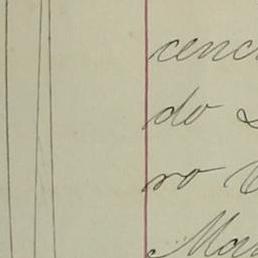 cenc
do
ro
Ma